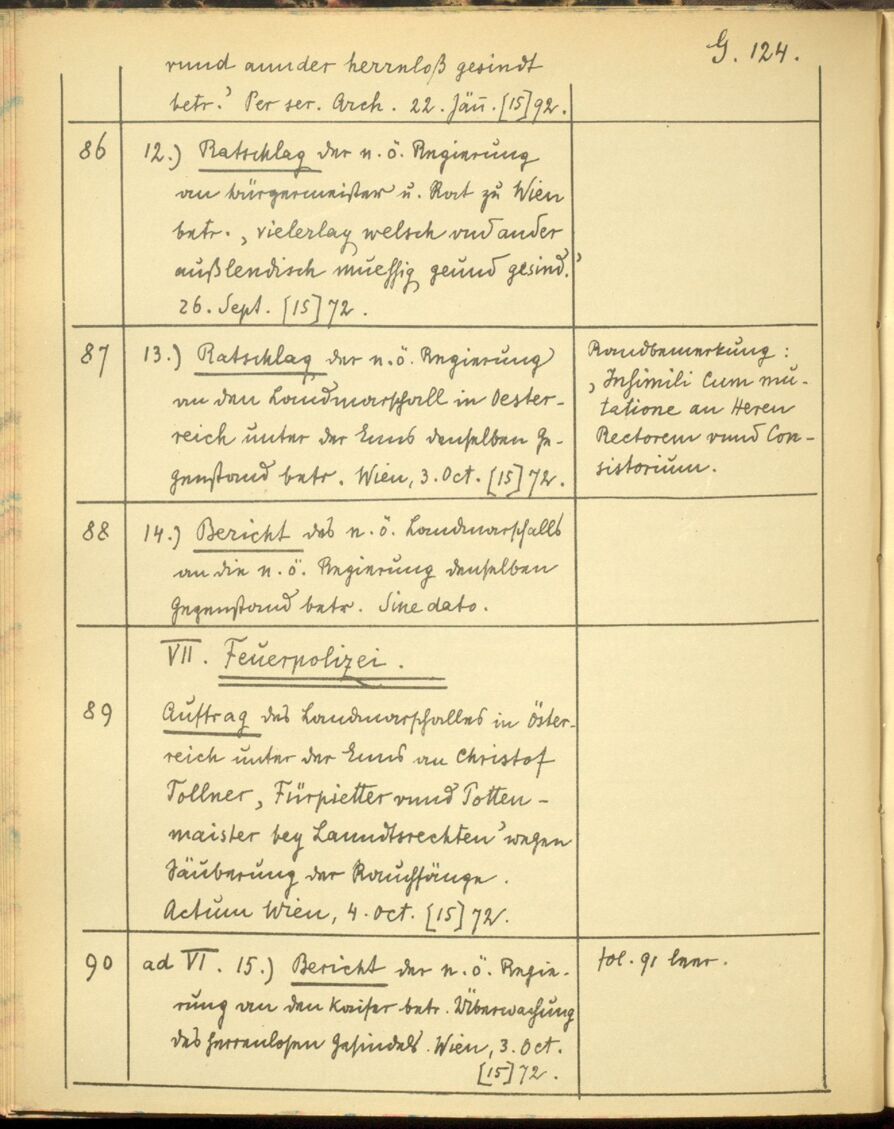 G. 124.
vnnd annder herrnloß gesindt
betr.' Per ser. Arch. 22. Jän̄. [15]92.
86 12.) Ratschlag der n. ö. Regierung
an bürgermeister u. Rat zu Wien
betr. ‚vielerlay welsch vnd ander
außlendisch muessig geund gesind.'
26. Sept. [15]72.
87 13.) Ratschlag der n. ö. Regierung
an den Landmarschall in Oester-
reich unter der Enns denselben Ge-
genstand betr. Wien, 3. Oct. [15]72.
Randbemerkung:
‚Insimili cum mu-
tatione an Heren
Rectorem vnnd Con-
sistorium.
88 14.) Bericht des n. ö. Landmarschalls
an die n. ö. Regierung denselben
Gegenstand betr. Sine dato.
VII. Feuerpolizei.
89 Auftrag des Landmarschalles in Öster-
reich unter der Enns an Christof
Tollner, ‚Fürpietter vnnd Potten-
maister bey Lanndtsrechten' wegen
Säuberung der Rauchfänge.
Actum Wien, 4. Oct. [15]72.
90 ad VI. 15.) Bericht der n. ö. Regie-
rung an den Kaiser betr. Überwachung
des herrenlosen Gesindels. Wien, 3. Oct.
[15]72.
fol. 91 leer.